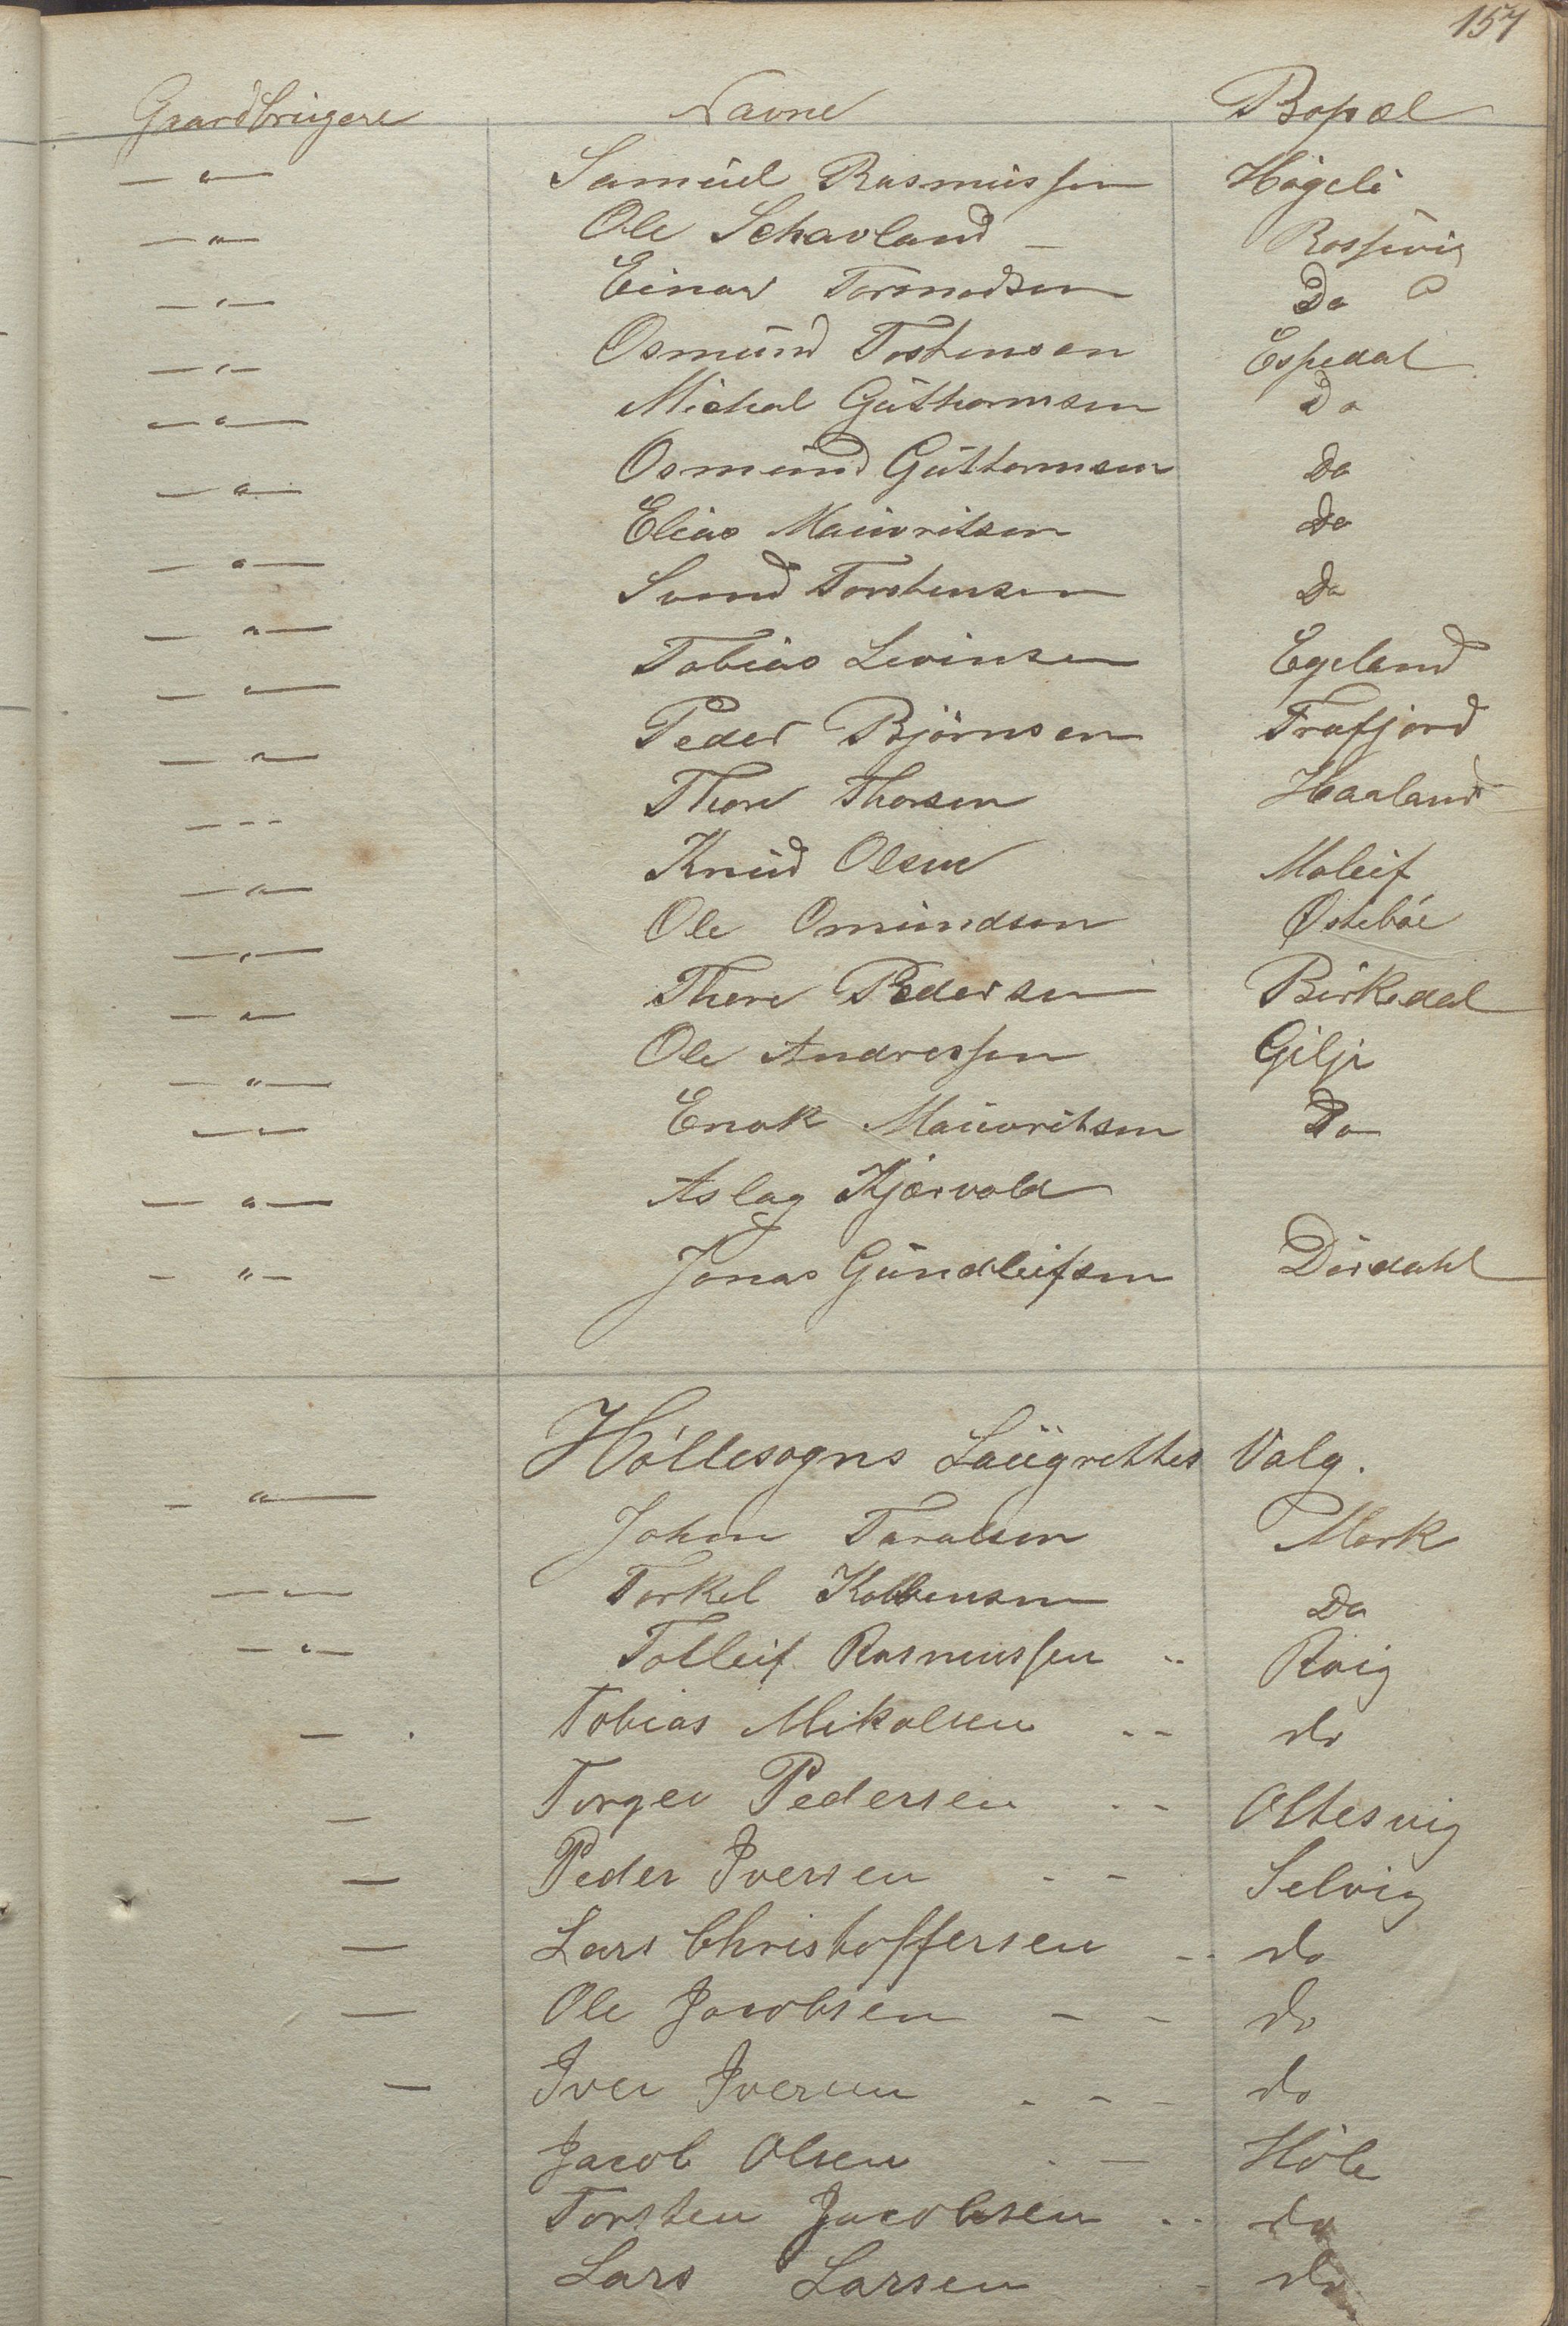 157
Gaardbrugere Navne Bopæl
— " — Samuel Rasmussen Högeli
— " — Ole Schavland — Rossevig
— " — Einar Tormodsen Do
— " — Osmund Tostensen Espedal
— " — Michal Guthormsen Do
— " — Osmund Guttormsen Do
— " — Elias Mauvritsen Do
— " — Svend Torstensen Do
— " — Tobias Levinsen Egeland
— " — Peder Björnsen Frafjord
— " — Thore Thorsen Haaland
— " — Knud Olsen Moleif
— " — Ole Omundsen Østeböe
— " — Thore Pedersen Birkedal
— " — Ole Andressen Gilje
— " — Enok Mauvritsen Do
— " — Aslag Kjærvold
— " — Jonas Gundleifsen Dirdahl
Höllesogns Laugrettes Valg.
— " — John Taralsen Mork
— " — Torkel Kolbensen Do
— " — Tolleif Rasmussen " Roig
— Tobias Mikalsen - - do
— Torger Pedersen - - Oltesvig
— Peder Iversen - - Selvig
— Lars Christoffersen - - do
— Ole Jacobsen - - do
— Iver Iversen - - - do
Jacob Olsen - — Höle
Torsten Jacobsen - - do
Lars Larsen - do